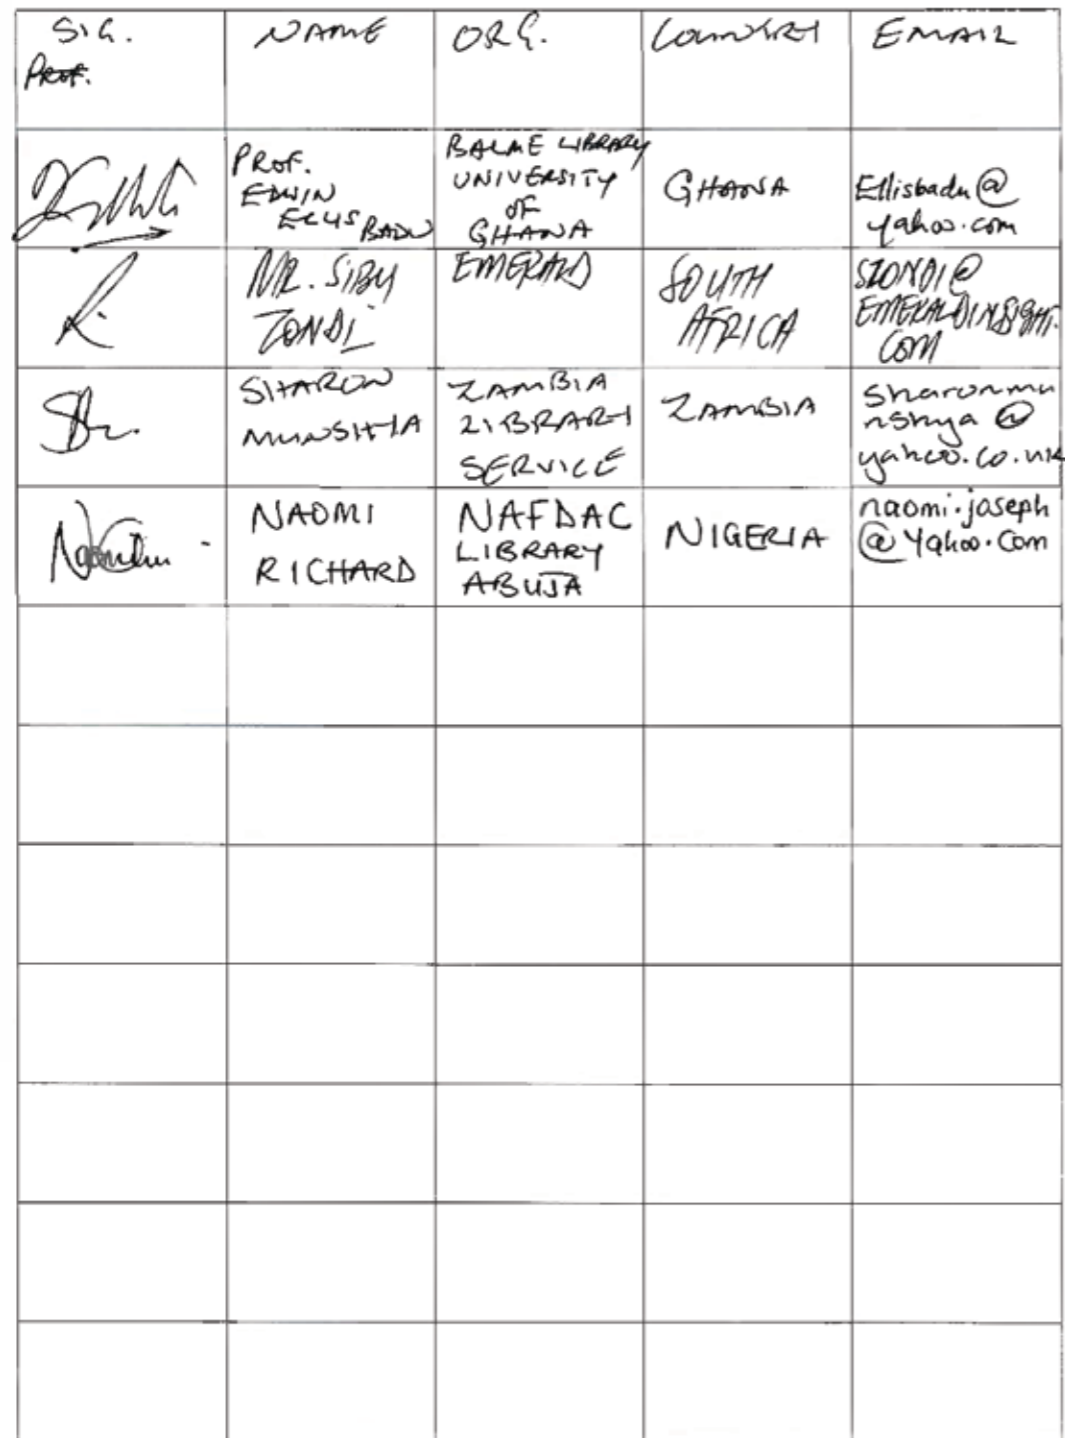 SIG. NAME ORG. COUNTRY EMAIL
Prof.
PROF. EDWIN ELLIS BADU
BALME LIBRARY UNIVERSITY OF GHANA
GHANA
Ellisbadu@
yahoo.com
MR. SIBU
ZONDI
EMERALD
SOUTH
AFRICA
SZONDI@
EMERALDINSIGHT.
COM
SHARON
MUNSHYA
ZAMBIA
LIBRARY
SERVICE
ZAMBIA
sharonmu
nshya@
yahoo.co.uk
NAOMI
RICHARD
NAFDAC
LIBRARY
ABUJA
NIGERIA
naomi.joseph
@Yahoo.Com